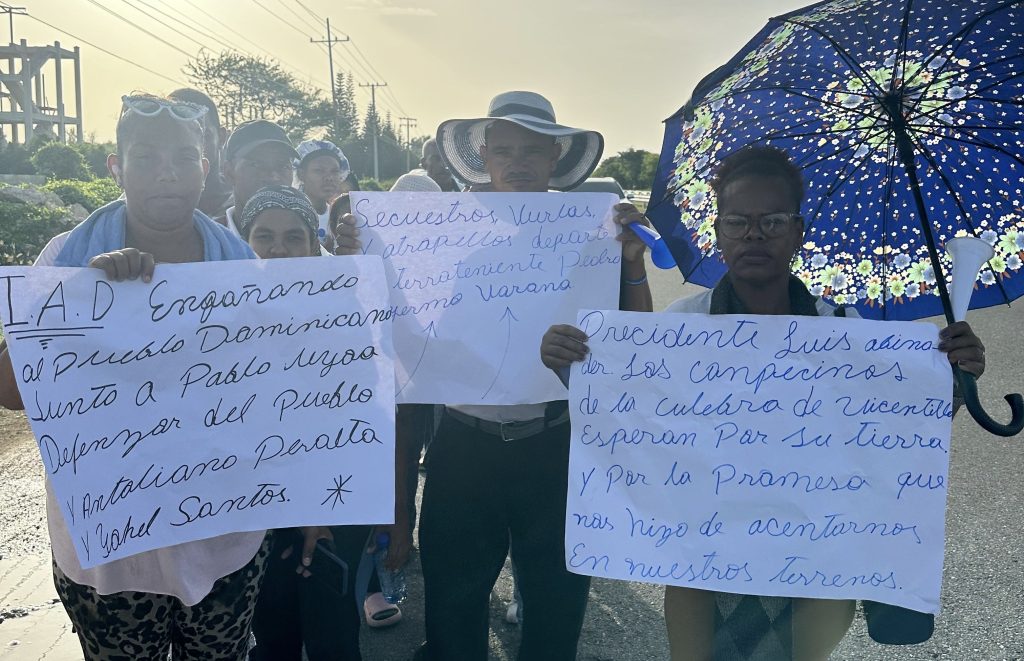 I.A.D Engañando
al Pueblo Dominicano
Junto A Pablo Ulloa
Defenzar del Pueblo
y Antaliano Peralta
y Yahel Santos.
Secuestros, Vurlas,
y atrapellos departe
terrateniente Pedro
Guermo Varana
Precidente Luis abina
der. Los canpecinos
de la culebra de Vicentillo
Esperan Por su tierra.
y Por la Promesa que
nos hizo de acentarnos
En nuestros terrenos.